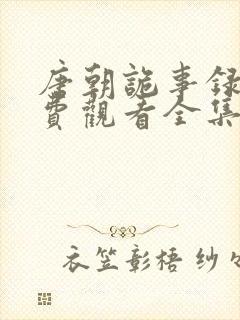 唐朝詭事録
費觀看全集
衣笠彰梧 纱